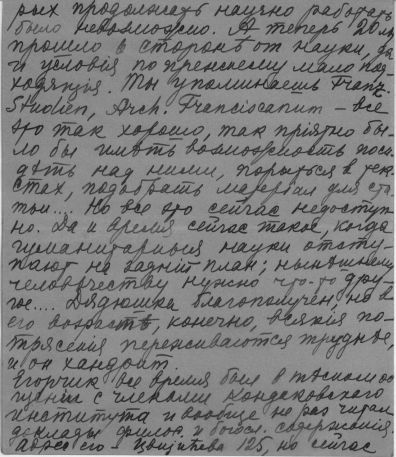 рых продолжать научно работать
было невозможно. А теперь 20 лѣт
прошло в сторонѣ от науки, да
и условія по прежнему мало под-
ходящія. Ты упоминаешь Franz.
Studien, Arch. Franciscanum – все
это так хорошо, так пріятно бы-
ло бы имѣть возможность поси-
дѣть над ними, порыться в тек-
стах, подобрать матеріал для ста-
тьи.... Но все это сейчас недоступ-
но. Да и время сейчас такое, когда
гуманитарныя науки отсту-
пают на задній план; нынѣшнему
человѣчеству нужно что-то дру-
гое.... Дядюшка благополучен, но в
его возрастѣ, конечно, всякія по-
трясенія переживаются труднѣе,
и он хандрит.
Егорчик все время был в тѣсном об
щеніи с членами Кондаковского
института и вообще не раз читал
доклады филос. и богосл. содержанія.
Адрес его – 125, но сейчас